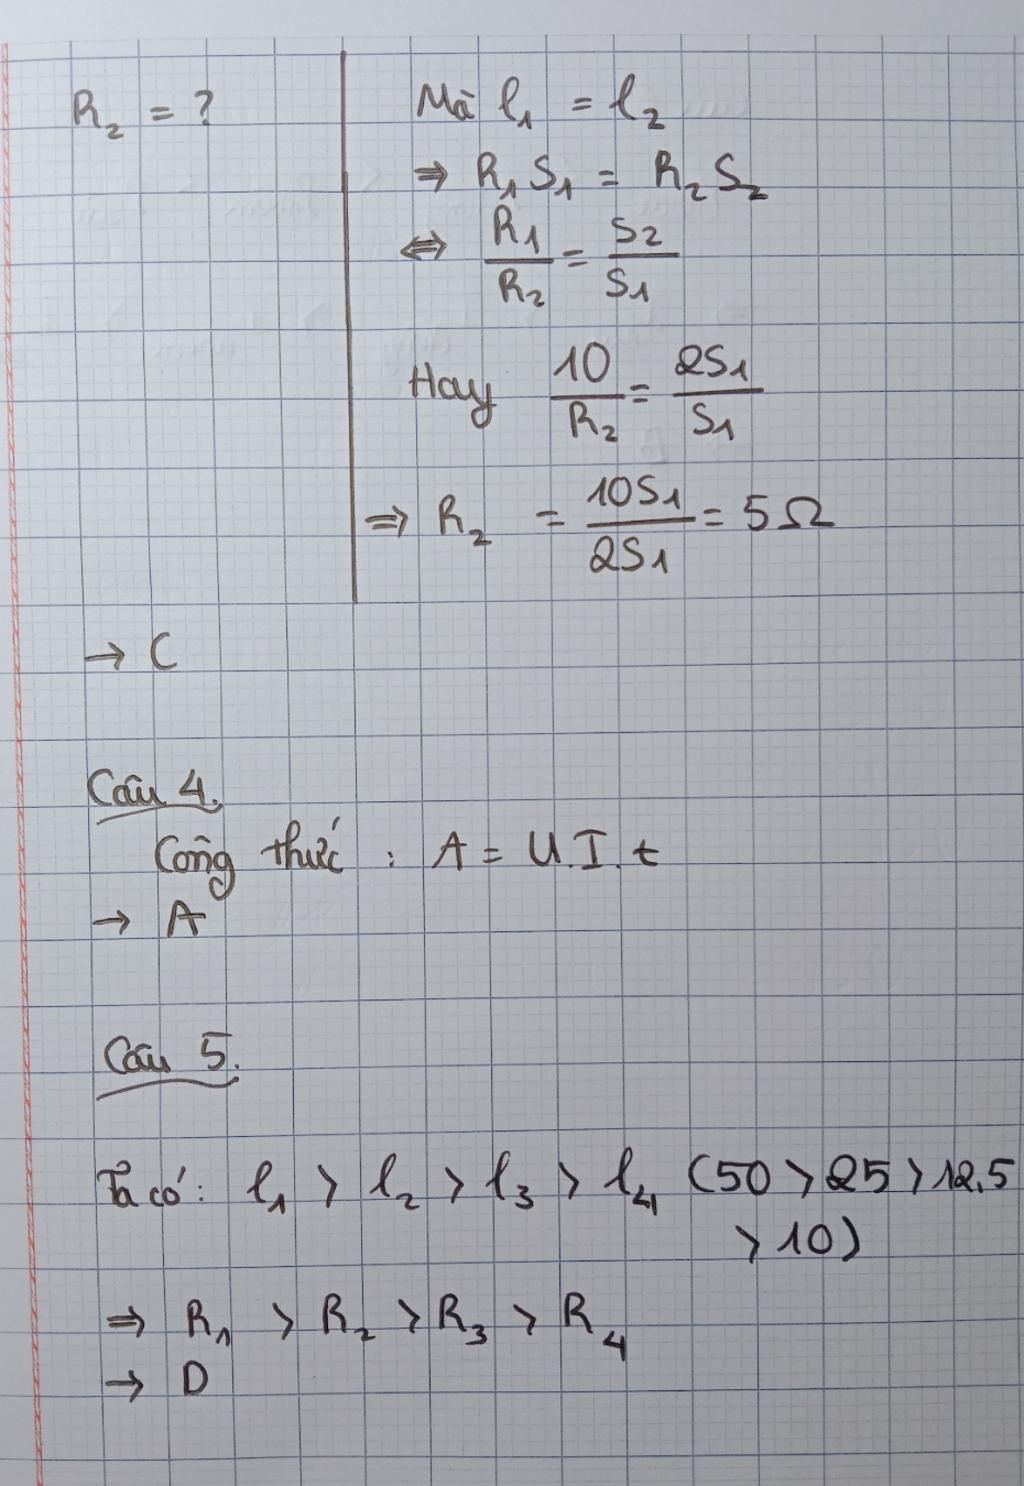 R₂ = ?
Mà l₁ = l₂
⇒ R₁S₁ = R₂S₂
⇔ R₁/R₂ = S₂/S₁
Hay 10/R₂ = 2S₁/S₁
⇒ R₂ = 10S₁/2S₁ = 5Ω
→ C
Câu 4.
Công thức : A = U.I.t
→ A
Câu 5.
Ta có: l₁ > l₂ > l₃ > l₄ (50 > 25 > 12,5
> 10)
⇒ R₁ > R₂ > R₃ > R₄
→ D